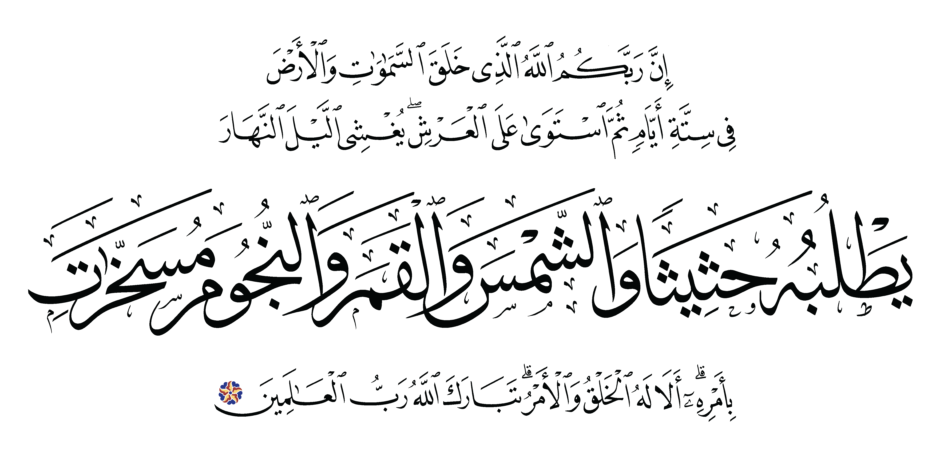 إِنَّ رَبَّكُمُ ٱللَّهُ ٱلَّذِى خَلَقَ ٱلسَّمَٰوَٰتِ وَٱلْأَرْضَ
فِى سِتَّةِ أَيَّامٍ ثُمَّ ٱسْتَوَىٰ عَلَى ٱلْعَرْشِ ۖ يُغْشِى ٱلَّيْلَ ٱلنَّهَارَ
يَطْلُبُهُۥ حَثِيثًا وَٱلشَّمْسَ وَٱلْقَمَرَ وَٱلنُّجُومَ مُسَخَّرَٰتٍۭ
بِأَمْرِهِۦٓ ۗ أَلَا لَهُ ٱلْخَلْقُ وَٱلْأَمْرُ ۗ تَبَارَكَ ٱللَّهُ رَبُّ ٱلْعَٰلَمِينَ